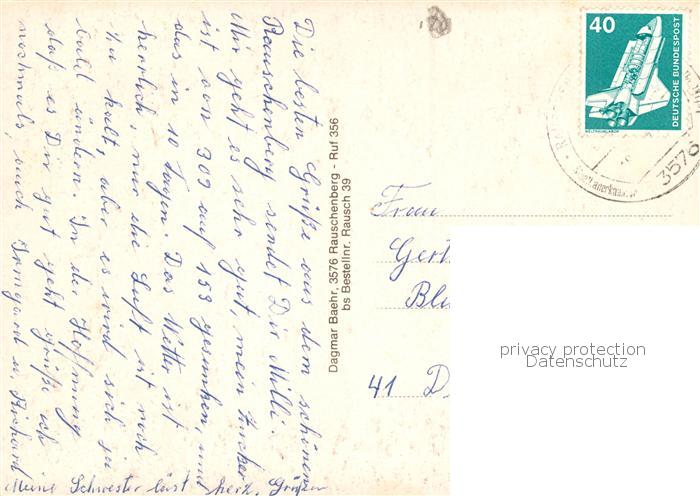 Die besten Grüße aus dem schönen
Rauschenberg sendet Dir Milli.
Mir geht es sehr gut, mein Zucker
ist von 309 auf 153 gesunken, und
das in 10 Tagen. Das Wetter ist
herrlich, nur die Luft ist noch
zu kalt, aber es wird sich ja
bald ändern. In der Hoffnung
daß es Dir gut geht grüße ich
nochmals, auch Irmgard u. Richard
Meine Schwester läst herz. Grüßen
Dagmar Baehr, 3576 Rauschenberg - Ruf 356
bs Bestellnr. Rausch 39
40
DEUTSCHE BUNDESPOST
WELTRAUMLABOR
3576
Frau
Gert
Bl
41 D
privacy protection
Datenschutz